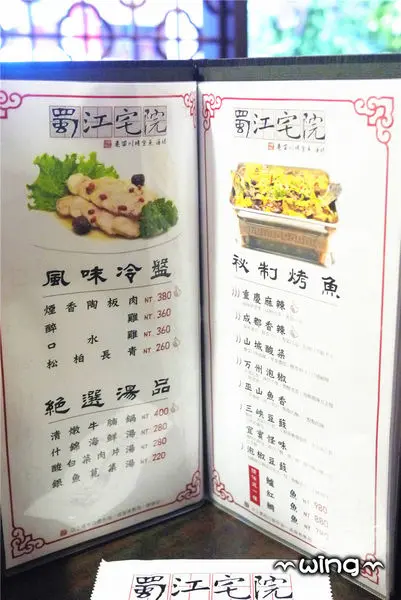 蜀江宅院
風味冷盤
煙香陶板肉 NT 380
醉雞 NT 360
口水雞 NT 360
松柏長青 NT 260
絕選湯品
清燉牛腩鍋 NT 400
什錦海鮮湯 NT 280
酸白菜肉片湯 NT 280
銀魚莧菜湯 NT 220
蜀江宅院
秘制烤魚
重慶麻辣
成都香辣
山城酸菜
万州泡椒
巫山魚香
三峽豆豉
宜賓怪味
泡椒豆豉
鱸魚 NT 980
紅鯛魚 NT 880
蜀江宅院
~wing~